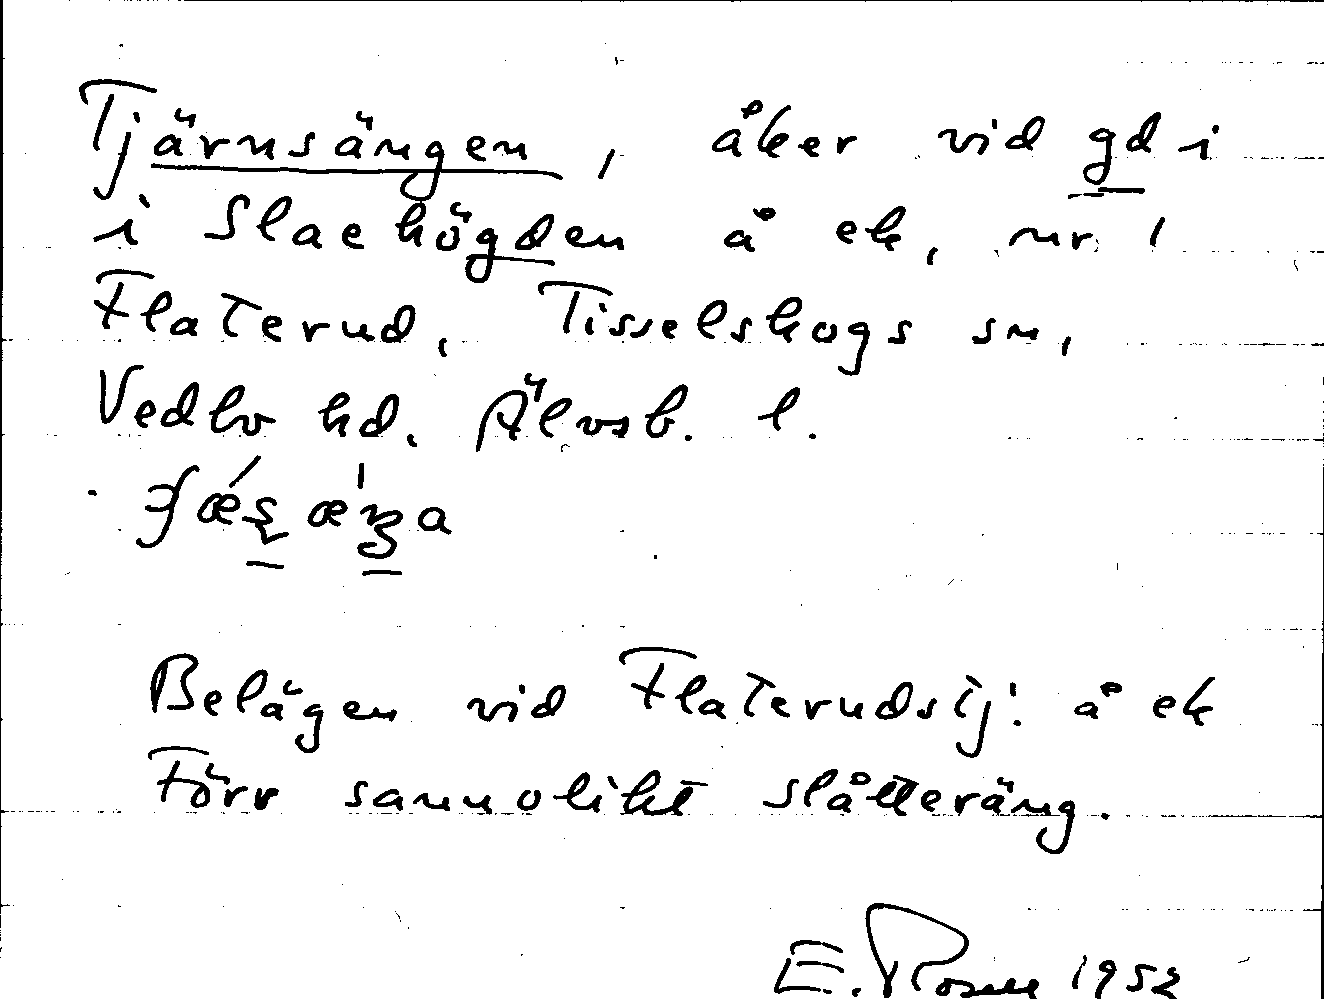 Tjärnsängen, åker vid gd i
i Slaehögden å ek, nr 1
Flaterud, Tisselskogs sn,
Vedbo hd. Älvsb. l.
Belägen vid Flaterudstj. å ek
Förr sannolikt slåtteräng.
E. Rosell 1952